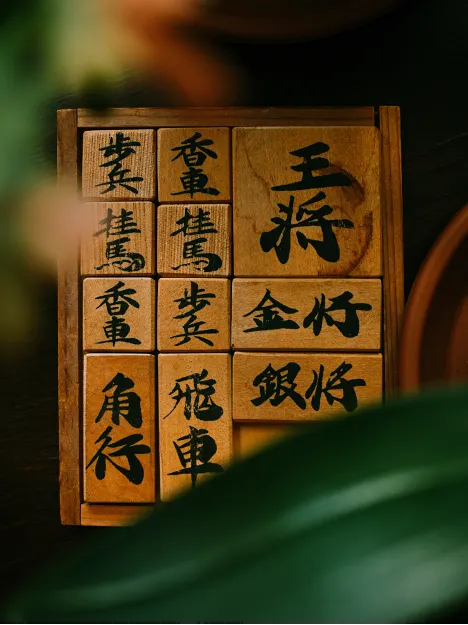 歩兵
香車
王将
桂馬
桂馬
香車
歩兵
金将
銀将
角行
飛車